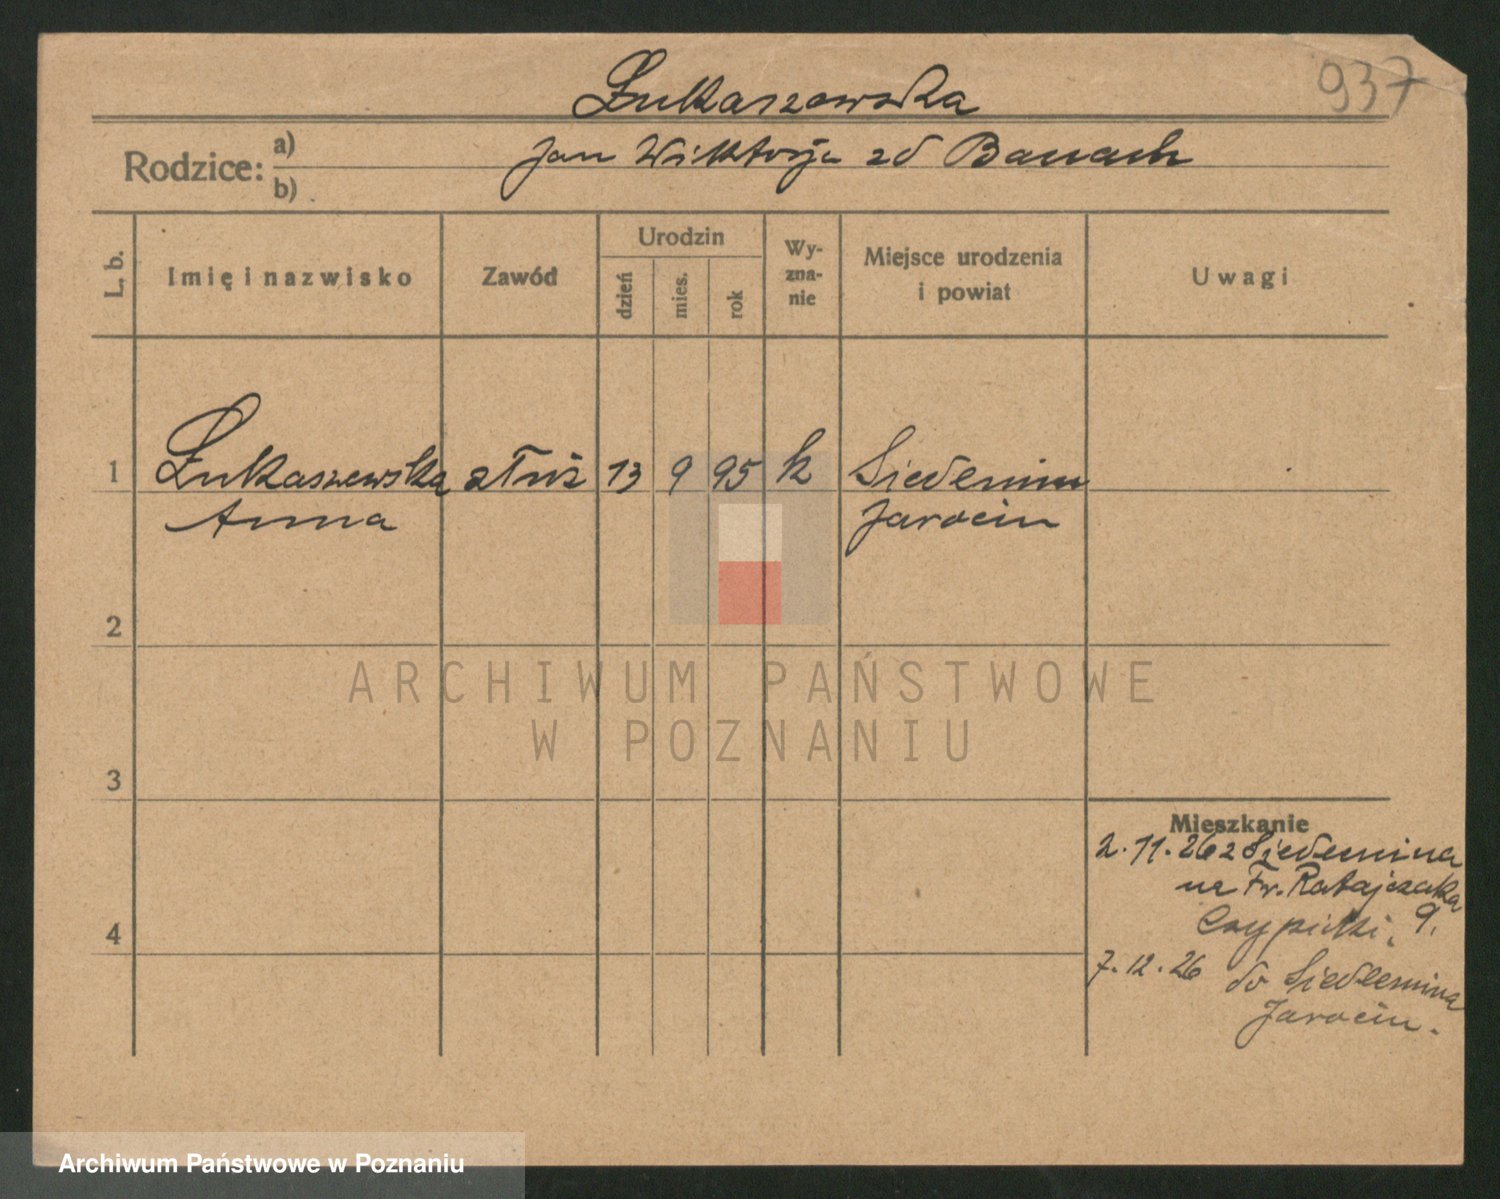 937
Łukaszewska
Rodzice: a)
Jan Wiktorja zd Banach
b)
L. b.
Imię i nazwisko
Zawód
Urodzin
dzień
mies.
rok
Wy-
zna-
nie
Miejsce urodzenia
i powiat
Uwagi
1
Łukaszewska
Anna
służ
13
9
95
k
Siedlemin
Jarocin
2
3
4
Mieszkanie
2.11.26 z Siedlemina
na Fr. Ratajczaka
9.
7.12.26 do Siedlemina
Jarocin.
ARCHIWUM PAŃSTWOWE
W POZNANIU
Archiwum Państwowe w Poznaniu